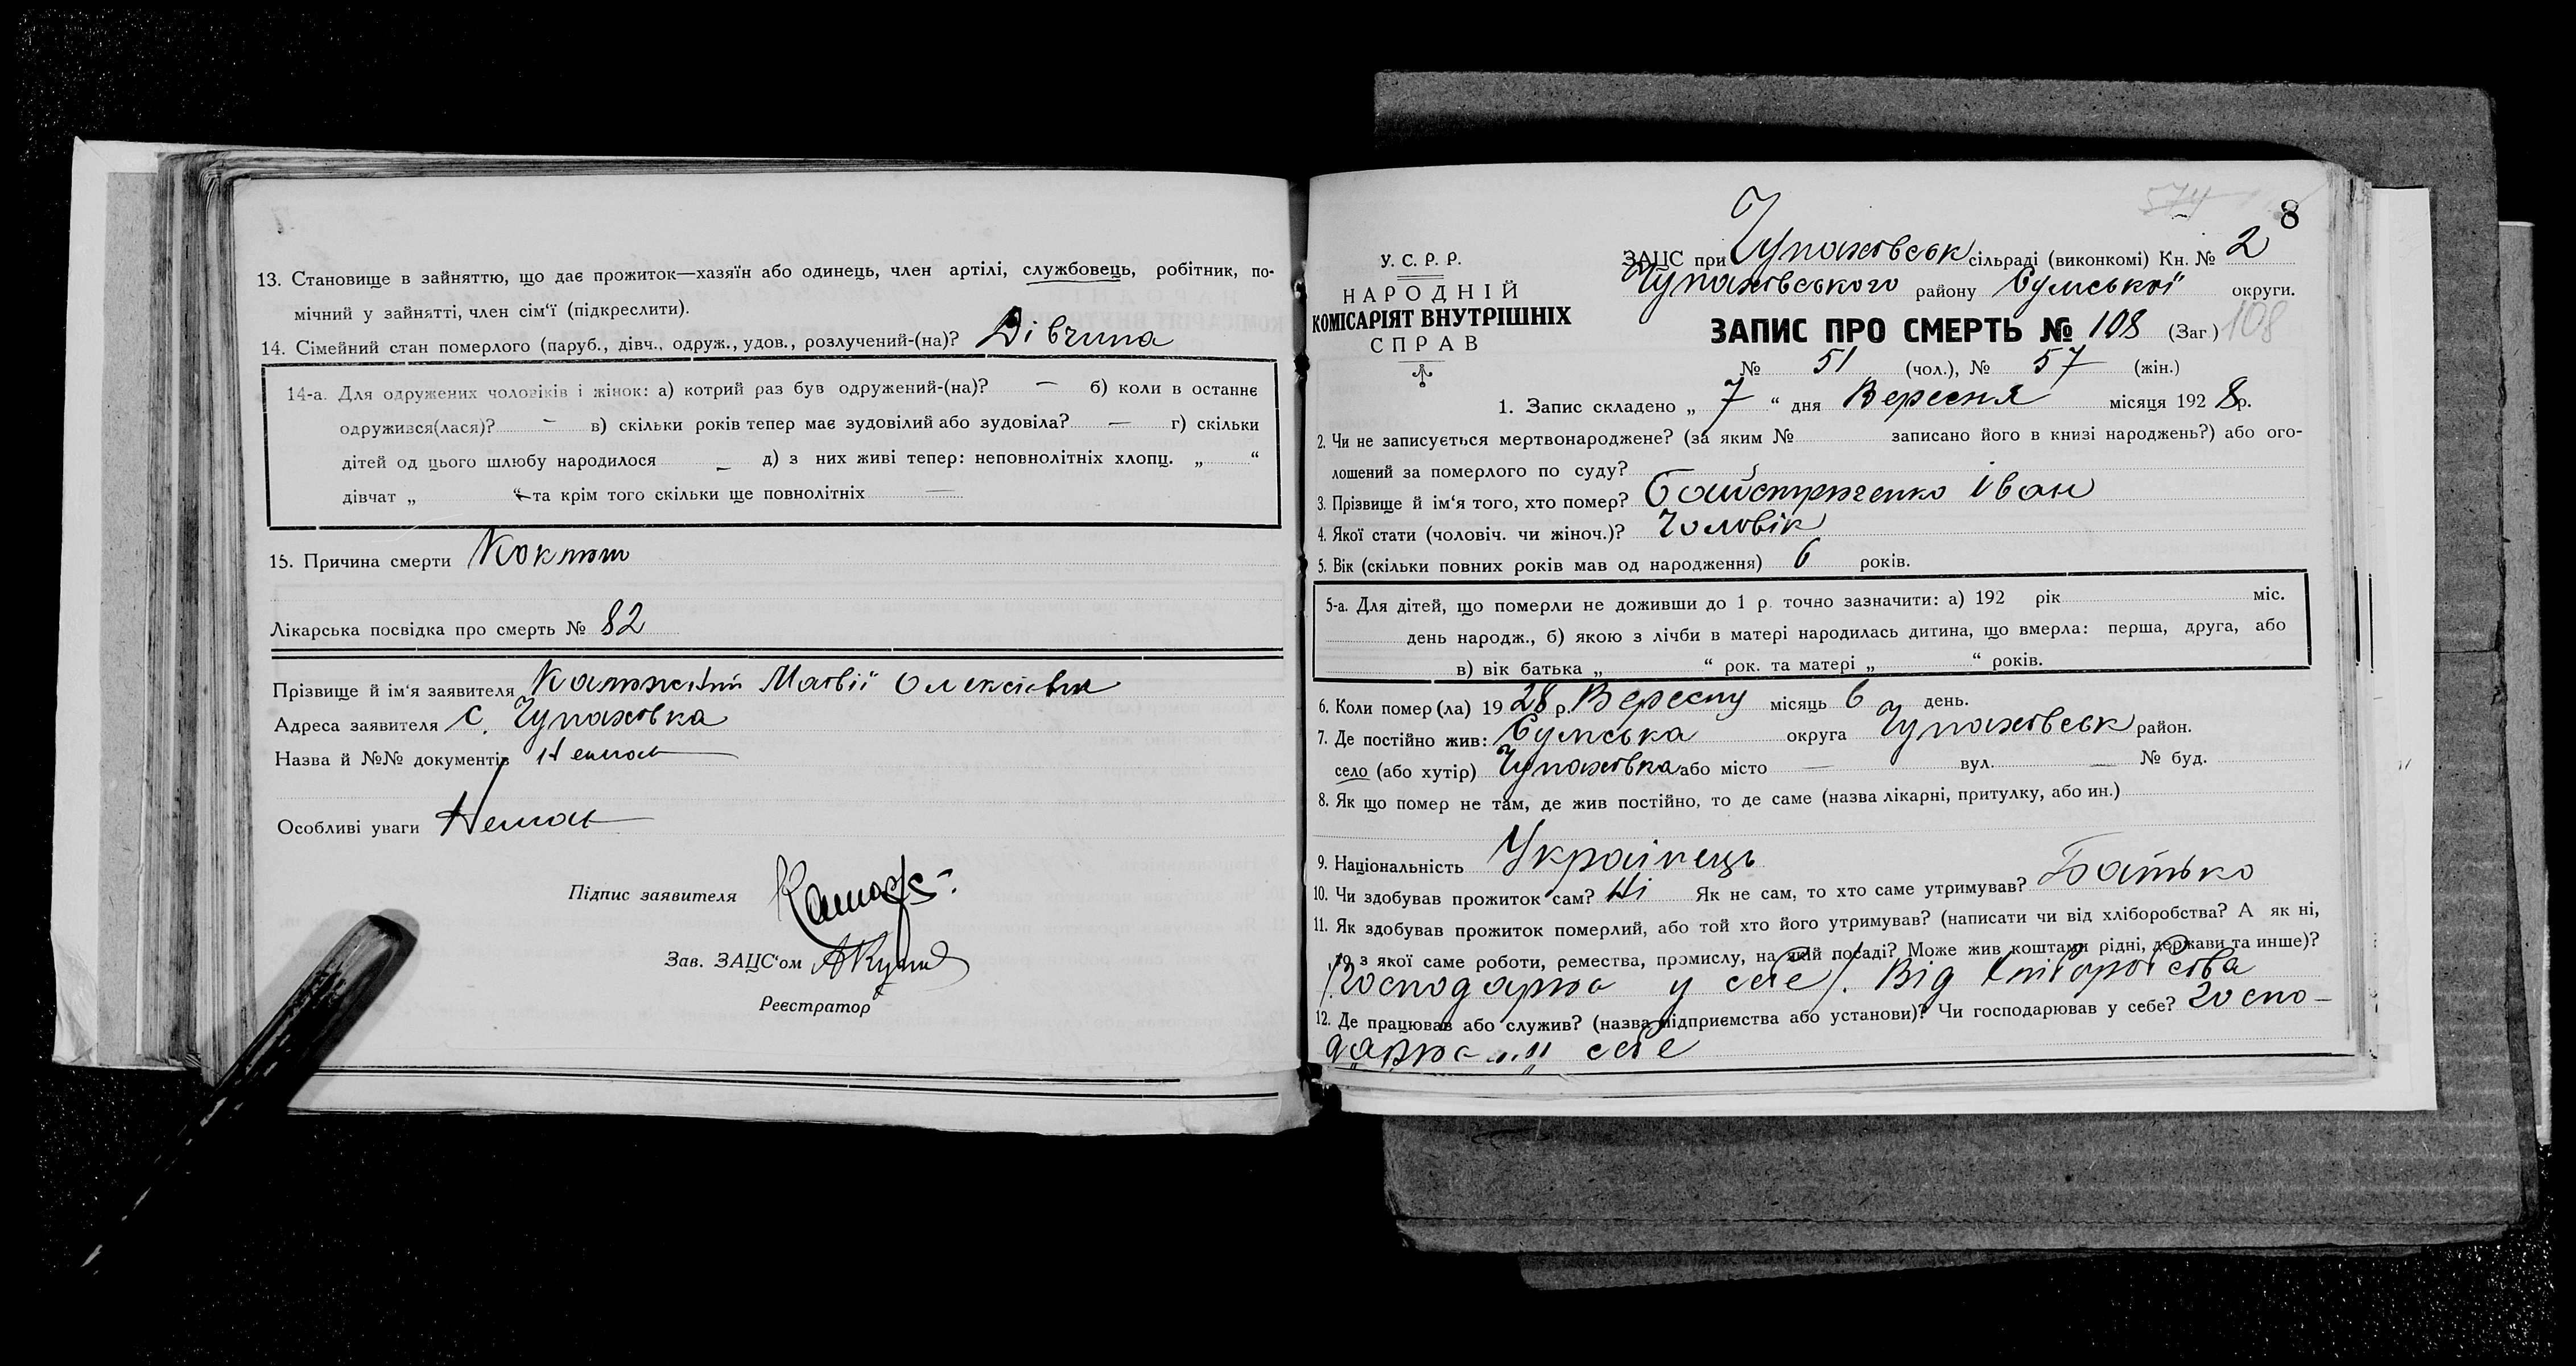 13. Становище в зайняттю, що дає прожиток—хазяїн або одинець, член артілі, службовець, робітник, по-
мічний у зайнятті, член сім'ї (підкреслити).
14. Сімейний стан померлого (паруб., дівч., одруж., удов., розлучений-(на)? Дівчина
14-а. Для одружених чоловіків і жінок: а) котрий раз був одружений-(на)? — б) коли в останнє
одружився(лася)? — в) скільки років тепер має зудовілий або зудовіла? — г) скільки
дітей од цього шлюбу народилося — д) з них живі тепер: неповнолітніх хлопц. „ “
дівчат „ “ та крім того скільки ще повнолітніх —
15. Причина смерти Коклюш
Лікарська посвідка про смерть № 82
Прізвище й ім'я заявителя Матвій Олексієвич
Адреса заявителя с. Чупаховка
Назва й №№ документів Немає
Особливі уваги Немає
Підпис заявителя
Зав. ЗАЦС'ом
Реєстратор
574
8
У. С. Р. Р.
НАРОДНІЙ
КОМІСАРІЯТ ВНУТРІШНІХ
СПРАВ
ЗАЦС при Чупаховськ сільраді (виконкомі) Кн. № 2
Чупаховського району Сумської округи.
ЗАПИС ПРО СМЕРТЬ № 108 (Заг.) 108
№ 51 (чол.), № 57 (жін.)
1. Запис складено „ 7 “ дня Вересня місяця 1928 р.
2. Чи не записується мертвонароджене? (за яким № записано його в книзі народжень?) або ого-
лошений за померлого по суду?
3. Прізвище й ім'я того, хто помер? Байстрюченко Іван
4. Якої стати (чоловіч. чи жіноч.)? Чоловік
5. Вік (скільки повних років мав од народження) 6 років.
5-а. Для дітей, що померли не доживши до 1 р. точно зазначити: а) 192 рік міс.
день народж., б) якою з лічби в матері народилась дитина, що вмерла: перша, друга, або
в) вік батька „ “ рок. та матері „ “ років.
6. Коли помер(ла) 1928 р. Вересну місяць 6 день.
7. Де постійно жив: Сумська округа Чупаховськ район.
село (або хутір) Чупаховка або місто — вул. — № буд.
8. Як що помер не там, де жив постійно, то де саме (назва лікарні, притулку, або ин.)
9. Національність Українець
10. Чи здобував прожиток сам? Ні Як не сам, то хто саме утримував? Батько
11. Як здобував прожиток померлий, або той хто його утримував? (написати чи від хліборобства? А як ні,
то з якої саме роботи, ремества, промислу, на якій посаді? Може жив коштами рідні, держави та инше)?
/Господарює у себе/. Від хліборобства
12. Де працював або служив? (назва підприємства або установи)? Чи господарював у себе? Госпо-
дарює у себе